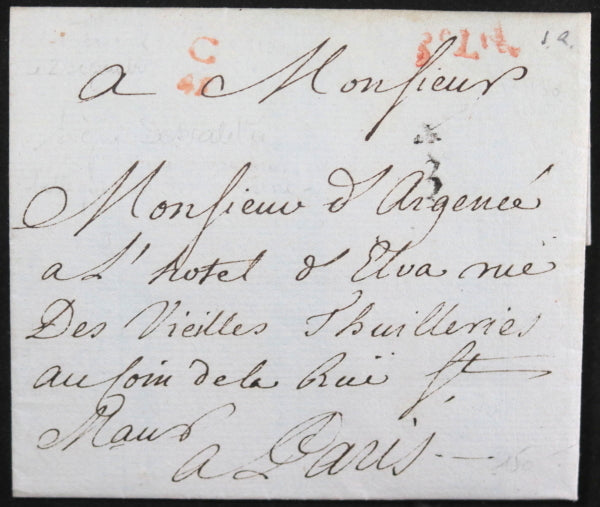 C
3e L.vée
a Monsieur
3
Monsieur d'Argencé
a L'hotel d'Elva rüe
Des Vieilles Thuilleries
au Coin de la Rüe St.
Maur
a Paris
150